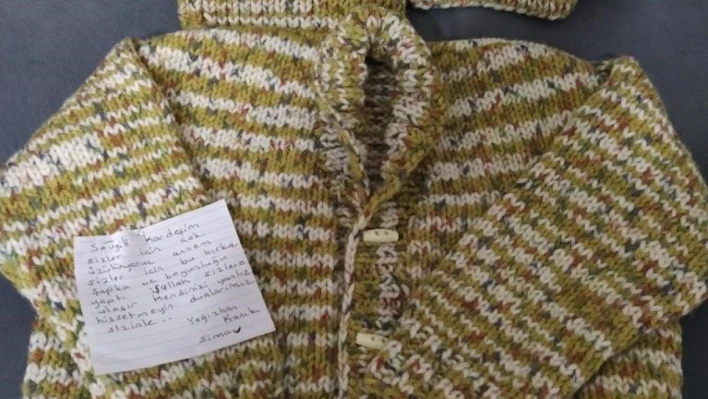 Sevgili Kardeşim
sizler için çok
üzülüyoruz annem
sizler için bu hırka,
şapka ve boyunluğu
yaptı. İşallah sizlere
ulaşır kendinizi yanlız
hissetmeyin dualarımız
sizinle... Yağızhan
Kanık
Sima